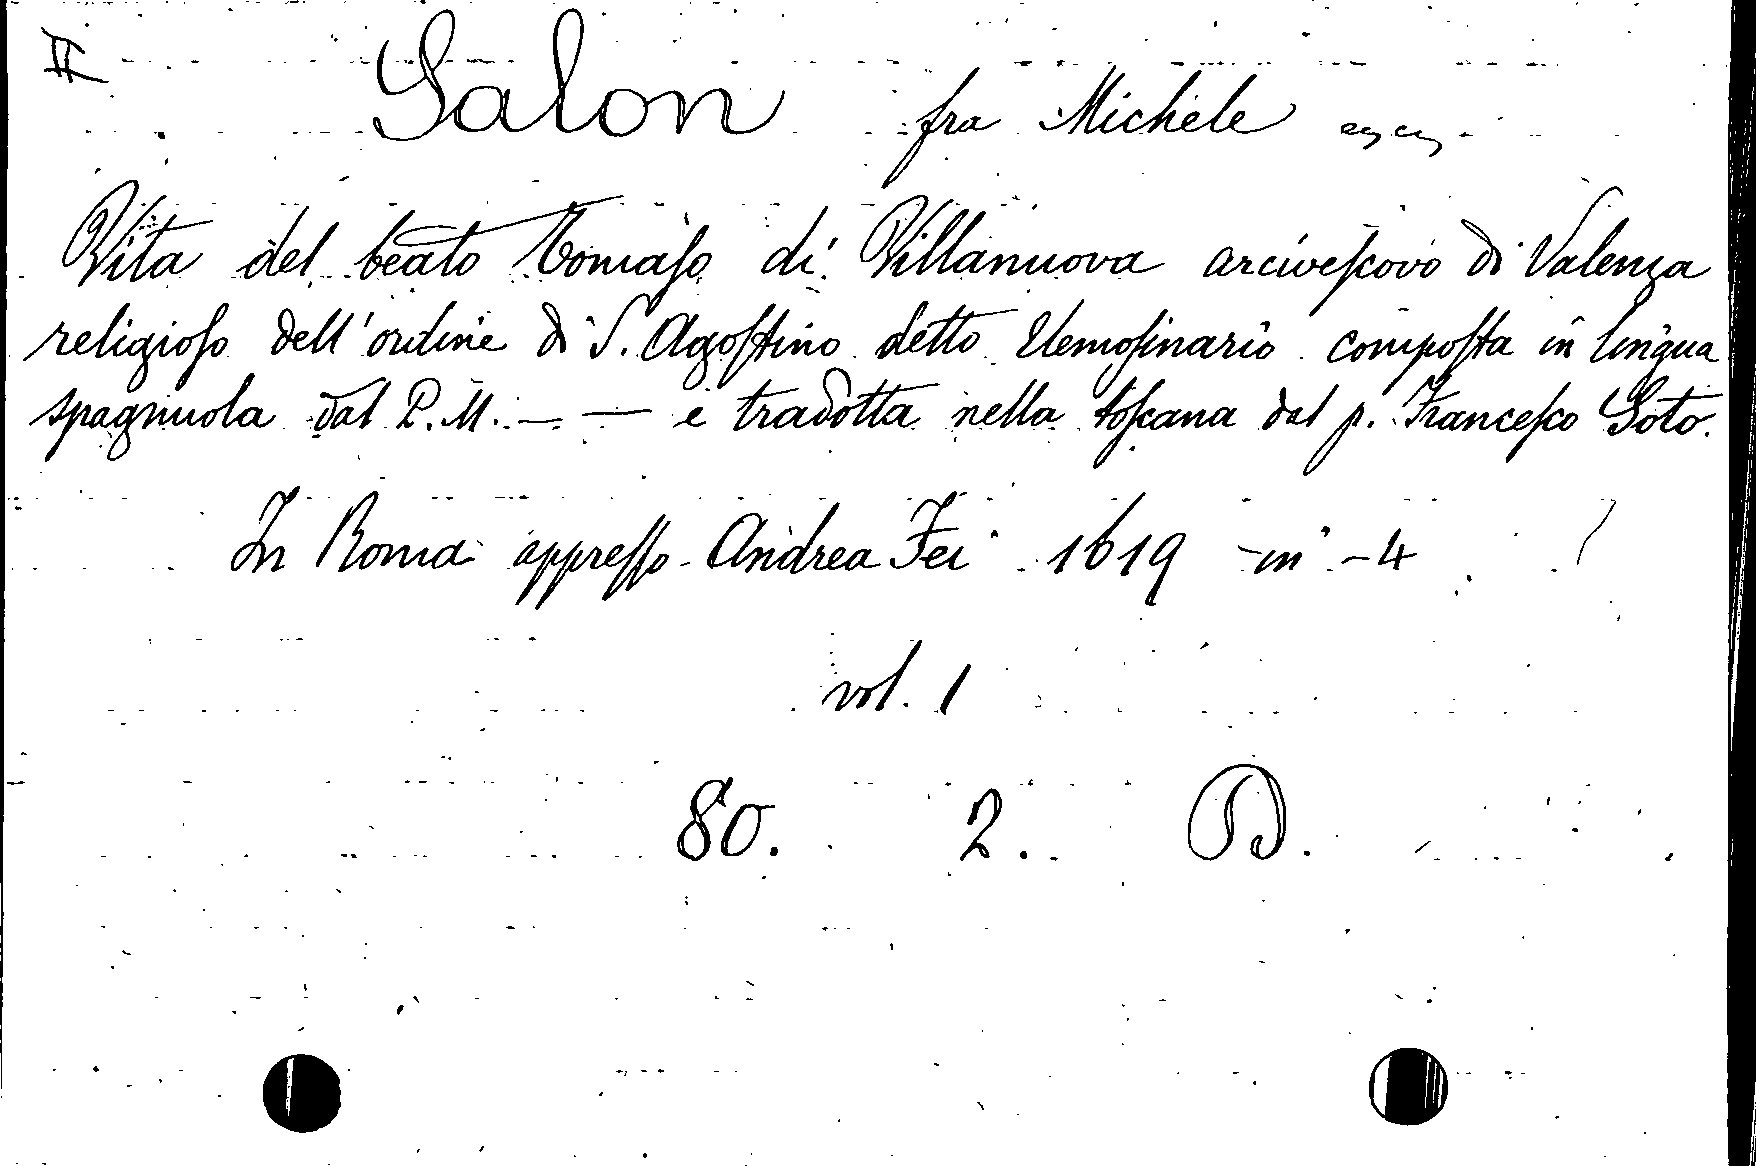 II
Salon fra Michele
Vita del beato Tomaſo di Villanuova arciveſcovo di Valenza
religioſo dell'ordine di S. Agoſtino detto Elemoſinario compoſta in lingua
spagnuola dal P. M. — — e tradotta nella toſcana dal p. Franceſco Soto.
In Roma appreſſo Andrea Fei 1619 - in - 4
vol. 1
80. 2. D.